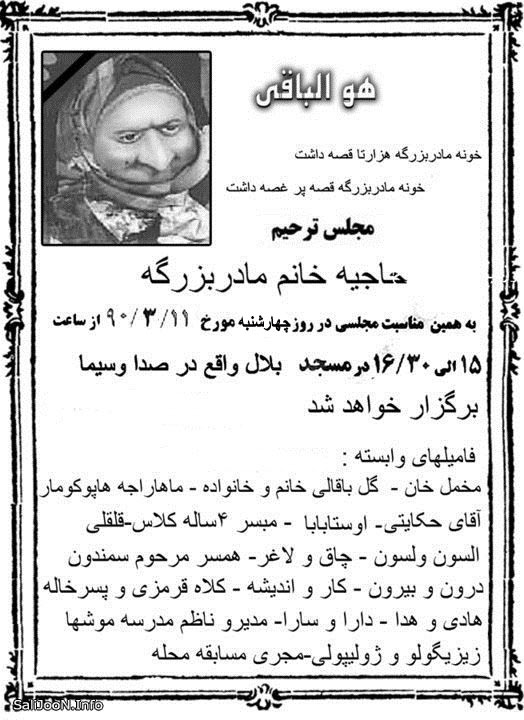 هو الباقی
خونه مادربزرگه هزارتا قصه داشت
خونه مادربزرگه قصه پر غصه داشت
مجلس ترحیم
حاجیه خانم مادربزرگه
به همین مناسبت مجلسی در روز چهارشنبه مورخ ۹۰/۳/۱۱ از ساعت
۱۵ الی ۱۶/۳۰ در مسجد بلال واقع در صدا وسیما
برگزار خواهد شد
فامیلهای وابسته :
مخمل خان - گل باقالی خانم و خانواده - ماهاراجه هاپوکومار
آقای حکایتی- اوستابابا - مبسر ۴ساله کلاس-قلقلی
السون ولسون - چاق و لاغر- همسر مرحوم سمندون
درون و بیرون - کار و اندیشه - کلاه قرمزی و پسرخاله
هادی و هدا - دارا و سارا- مدیرو ناظم مدرسه موشها
زیزیگولو و ژولیپولی-مجری مسابقه محله
SaliJooN.Info